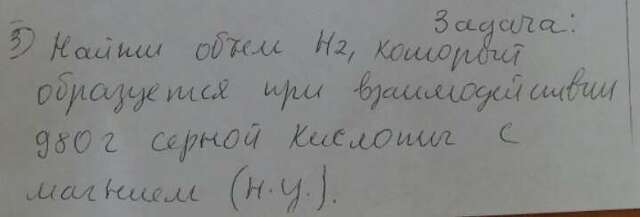 Задача:
3) Найти объем H2, который
образуется при взаимодействии
980г серной кислоты с
магнием (н.у.).